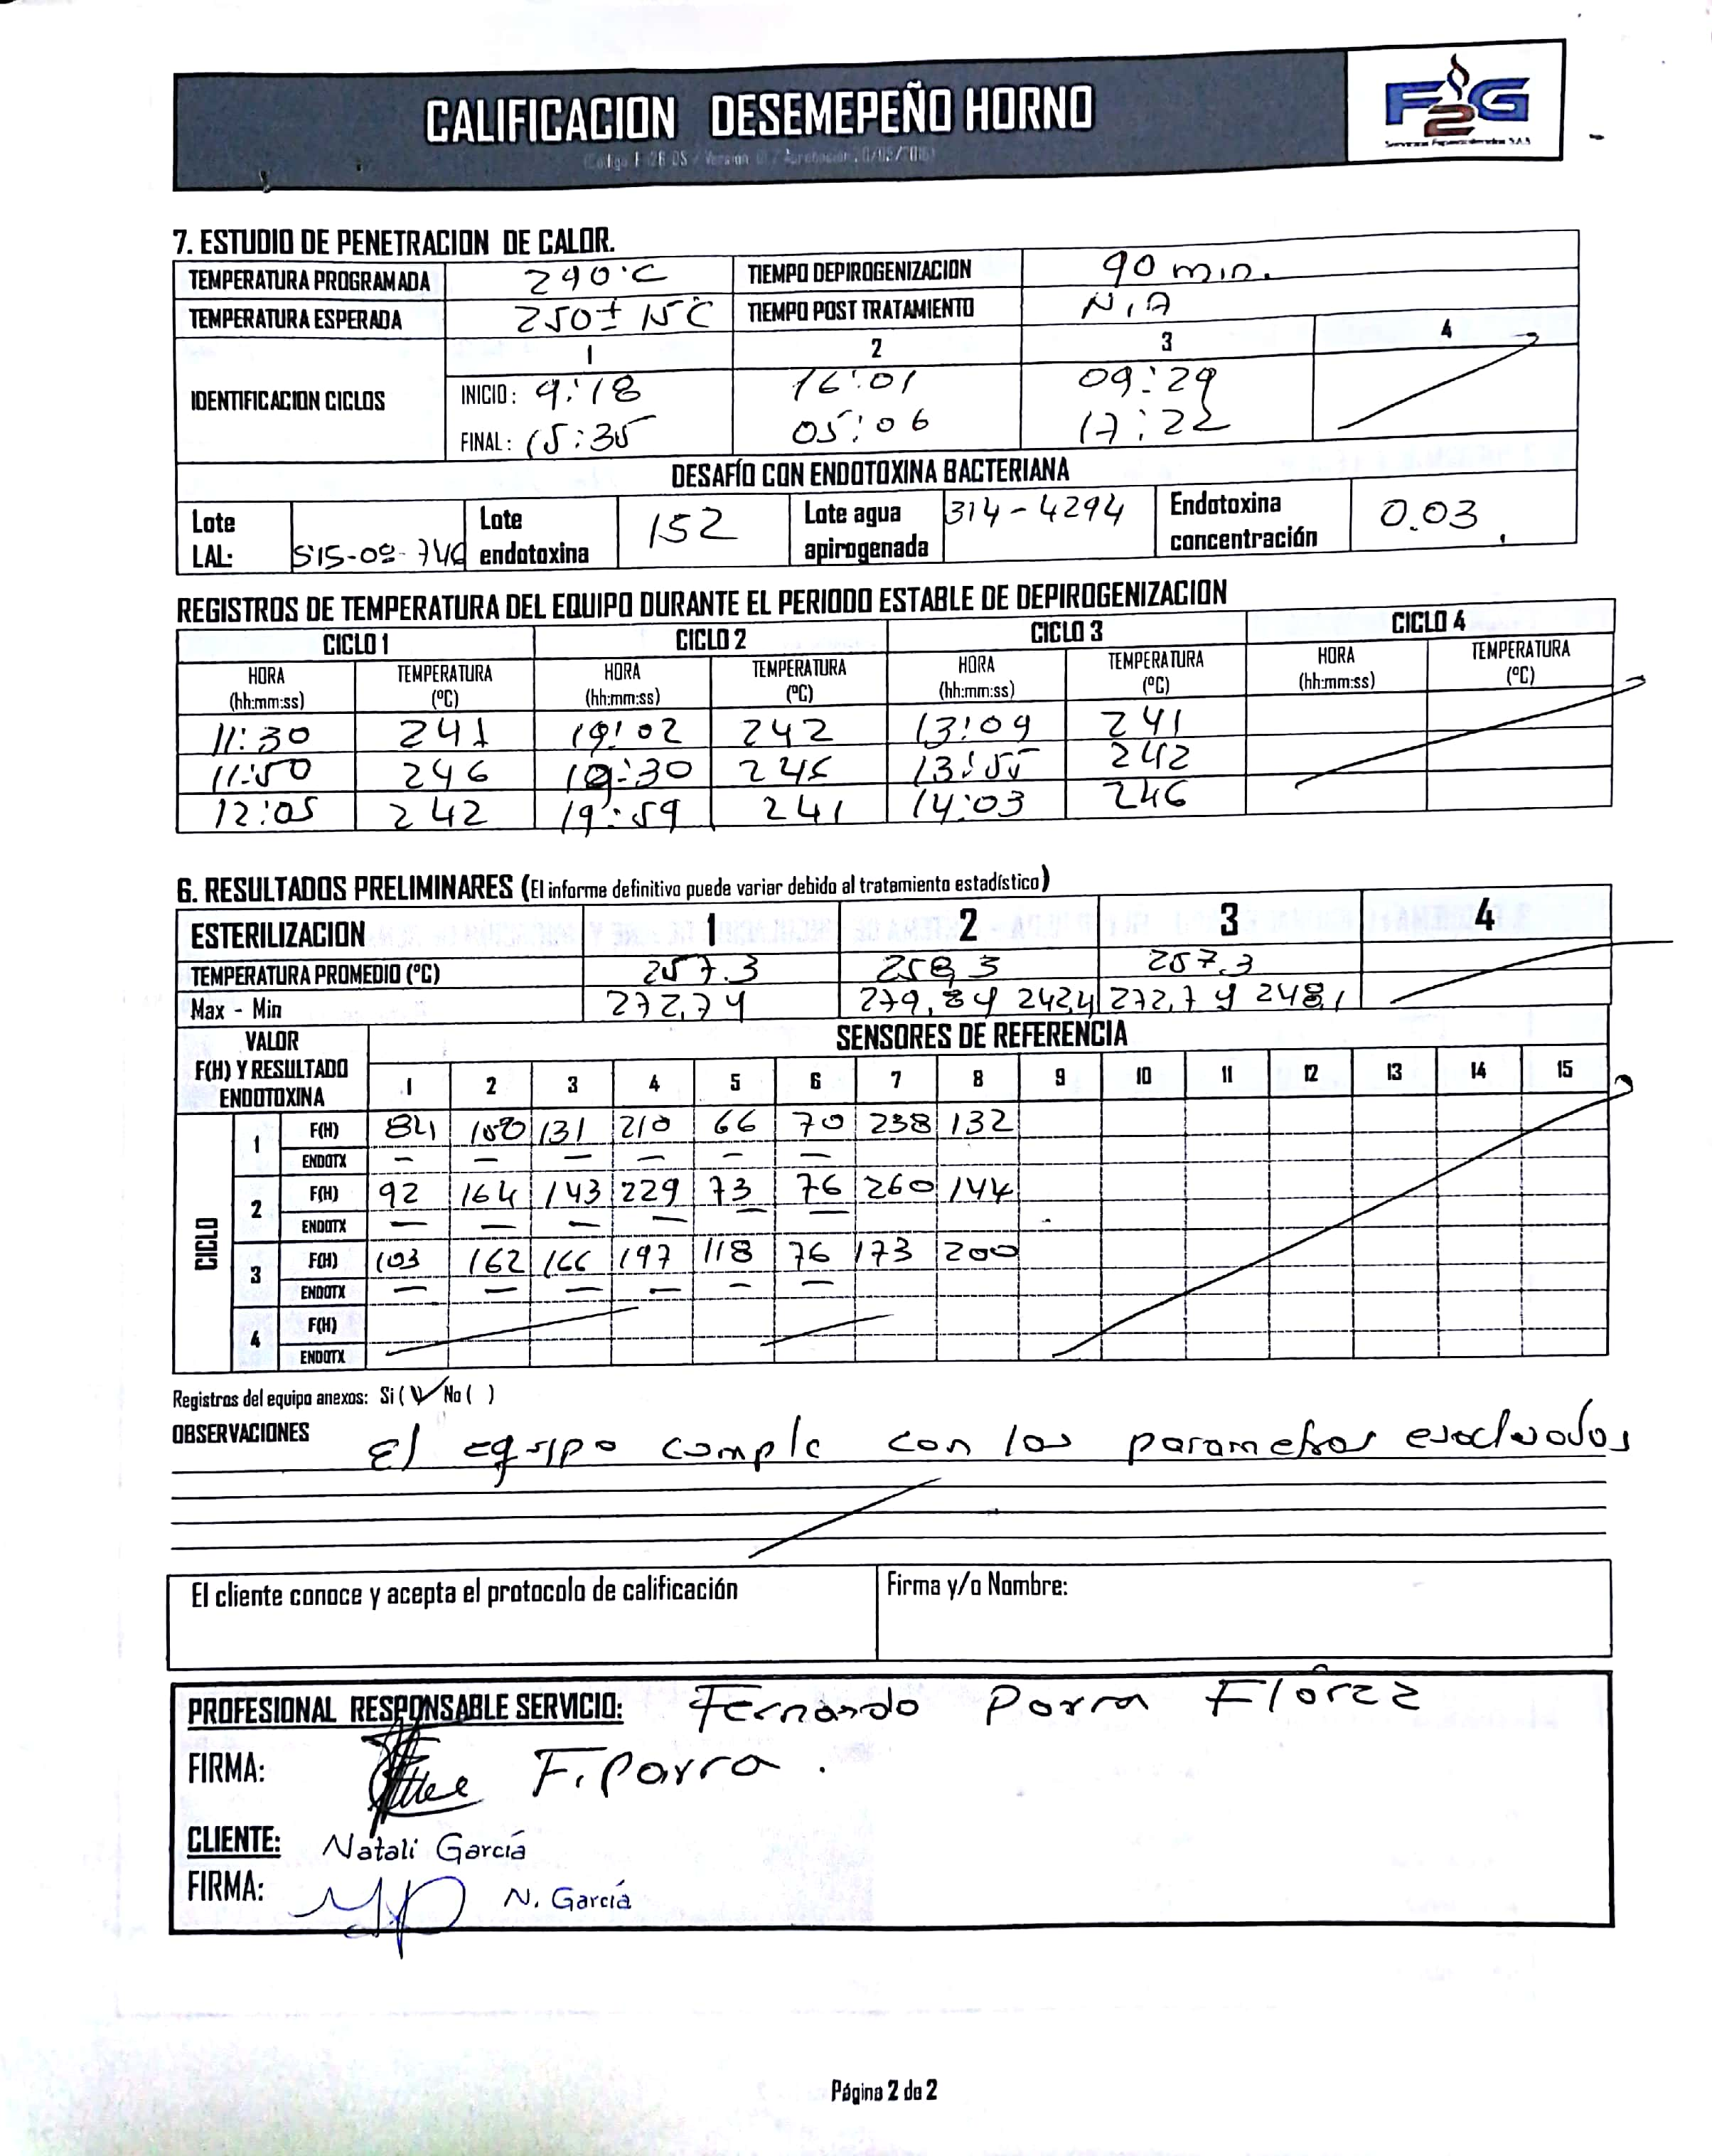 CALIFICACION DESEMEPEÑO HORNO
F2G
7. ESTUDIO DE PENETRACION DE CALOR.
TEMPERATURA PROGRAMADA 240°C TIEMPO DEPIROGENIZACION 90 min.
TEMPERATURA ESPERADA 250± 15°C TIEMPO POST TRATAMIENTO N,A
IDENTIFICACION CICLOS 1 2 3 4
INICIO: 9:18 16:01 09:29
FINAL: 15:35 05:06 17:22
DESAFÍO CON ENDOTOXINA BACTERIANA
Lote LAL: Lote endotoxina 152 Lote agua apirogenada 314-4294 Endotoxina concentración 0.03
REGISTROS DE TEMPERATURA DEL EQUIPO DURANTE EL PERIODO ESTABLE DE DEPIROGENIZACION
CICLO 1 CICLO 2 CICLO 3 CICLO 4
HORA (hh:mm:ss) TEMPERATURA (ºC) HORA (hh:mm:ss) TEMPERATURA (ºC) HORA (hh:mm:ss) TEMPERATURA (ºC) HORA (hh:mm:ss) TEMPERATURA (ºC)
11:30 241 19:02 242 13:09 241
11:50 246 19:30 245 13:55 242
12:05 242 19:59 241 14:03 246
6. RESULTADOS PRELIMINARES (El informe definitivo puede variar debido al tratamiento estadístico)
ESTERILIZACION 1 2 3 4
TEMPERATURA PROMEDIO (ºC) 257.3 258,3 257.3
Max - Min 272,7 y 279,8 y 242,4 272,7 y 248,1
VALOR F(H) Y RESULTADO ENDOTOXINA SENSORES DE REFERENCIA
1 2 3 4 5 6 7 8 9 10 11 12 13 14 15
CICLO
1 F(H) 84 150 131 210 66 70 238 132
ENDOTX — — — — — —
2 F(H) 92 164 143 229 73 76 260 144
ENDOTX — — — — — —
3 F(H) 103 162 166 197 118 76 173 200
ENDOTX — — — — — —
4 F(H)
ENDOTX
Registros del equipo anexos: Si (✓) No ( )
OBSERVACIONES El equipo cumple con los parametros evaluados
El cliente conoce y acepta el protocolo de calificación Firma y/o Nombre:
PROFESIONAL RESPONSABLE SERVICIO: Fernando Parra Florez
FIRMA: F. Parra.
CLIENTE: Natali García
FIRMA: N. García
Página 2 de 2